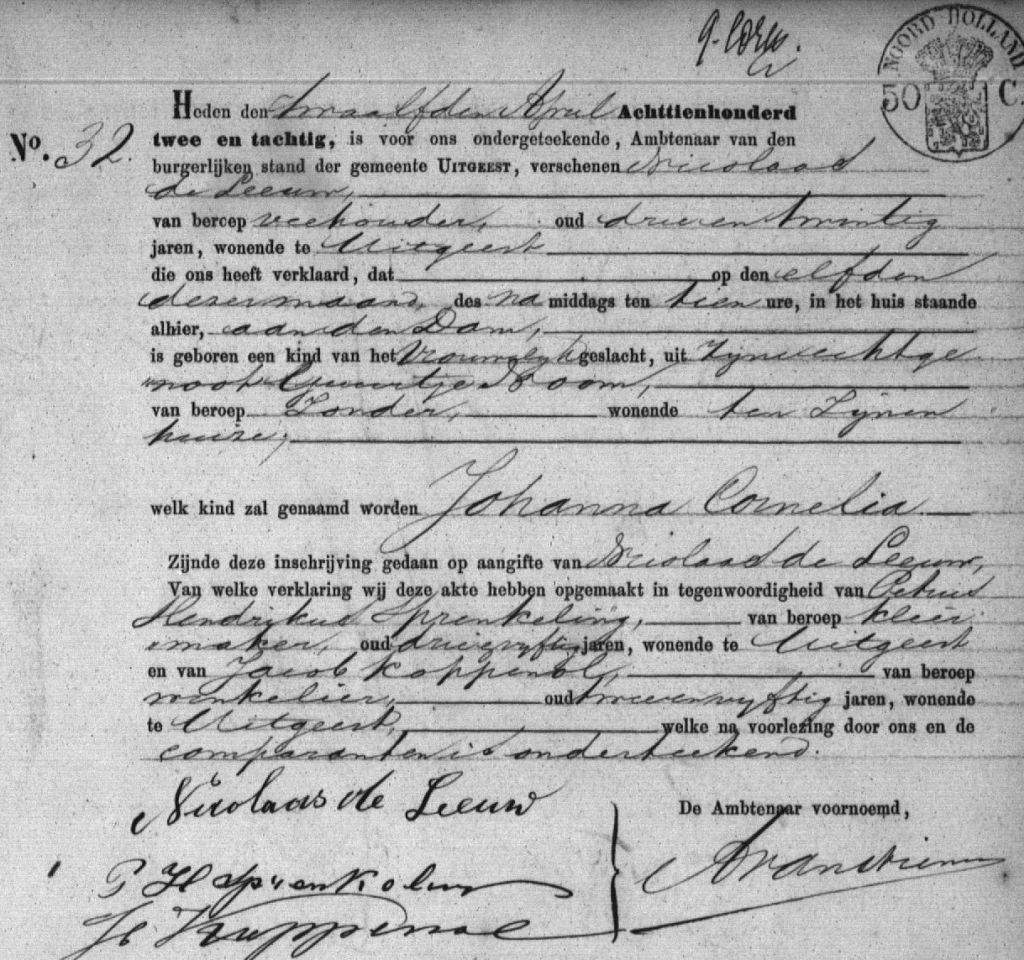 NOORD HOLLAND
50 C.
Heden den twaalfden April Achttienhonderd
No. 32.
twee en tachtig, is voor ons ondergeteekende, Ambtenaar van den
burgerlijken stand der gemeente UITGEEST, verschenen Nicolaas
de Leeuw,
van beroep veehouder, oud drie en twintig
jaren, wonende te Uitgeest
die ons heeft verklaard, dat op den elfden
dezer maand, des na middags ten tien ure, in het huis staande
alhier, aan den Dam,
is geboren een kind van het vrouwelijk geslacht, uit zijne echtge
noot Guurtje Boom,
van beroep Zonder, wonende ten zijnen
huize,
welk kind zal genaamd worden Johanna Cornelia
Zijnde deze inschrijving gedaan op aangifte van Nicolaas de Leeuw,
Van welke verklaring wij deze akte hebben opgemaakt in tegenwoordigheid van Petrus
Hendrikus Sprenkeling, van beroep kleer
maker, oud jaren, wonende te Uitgeest
en van Jacob Koppenol, van beroep
winkelier, oud twee en vyftig jaren, wonende
te Uitgeest, welke na voorlezing door ons en de
comparanten is onderteekend.
Nicolaas de Leeuw
De Ambtenaar voornoemd,
P H